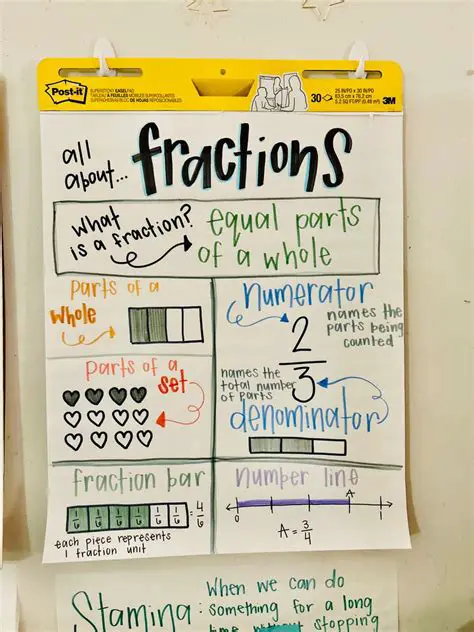 Post-it
SUPERSTICKY EASEL PAD
30
25 IN/PO x 30 IN/PO
63,5 cm x 76,2 cm
3M
all about... fractions
what is a fraction?
equal parts
of a whole
parts of a
whole
parts of a
set
numerator
names the
parts being
counted
2
3
names the
total number
of parts
denominator
fraction bar
1/6 1/6 1/6 1/6 1/6 1/6 = 4/6
each piece represents
1 fraction unit
number line
A
0 1
A = 3/4
Stamina:
When we can do
something for a long
time without stopping